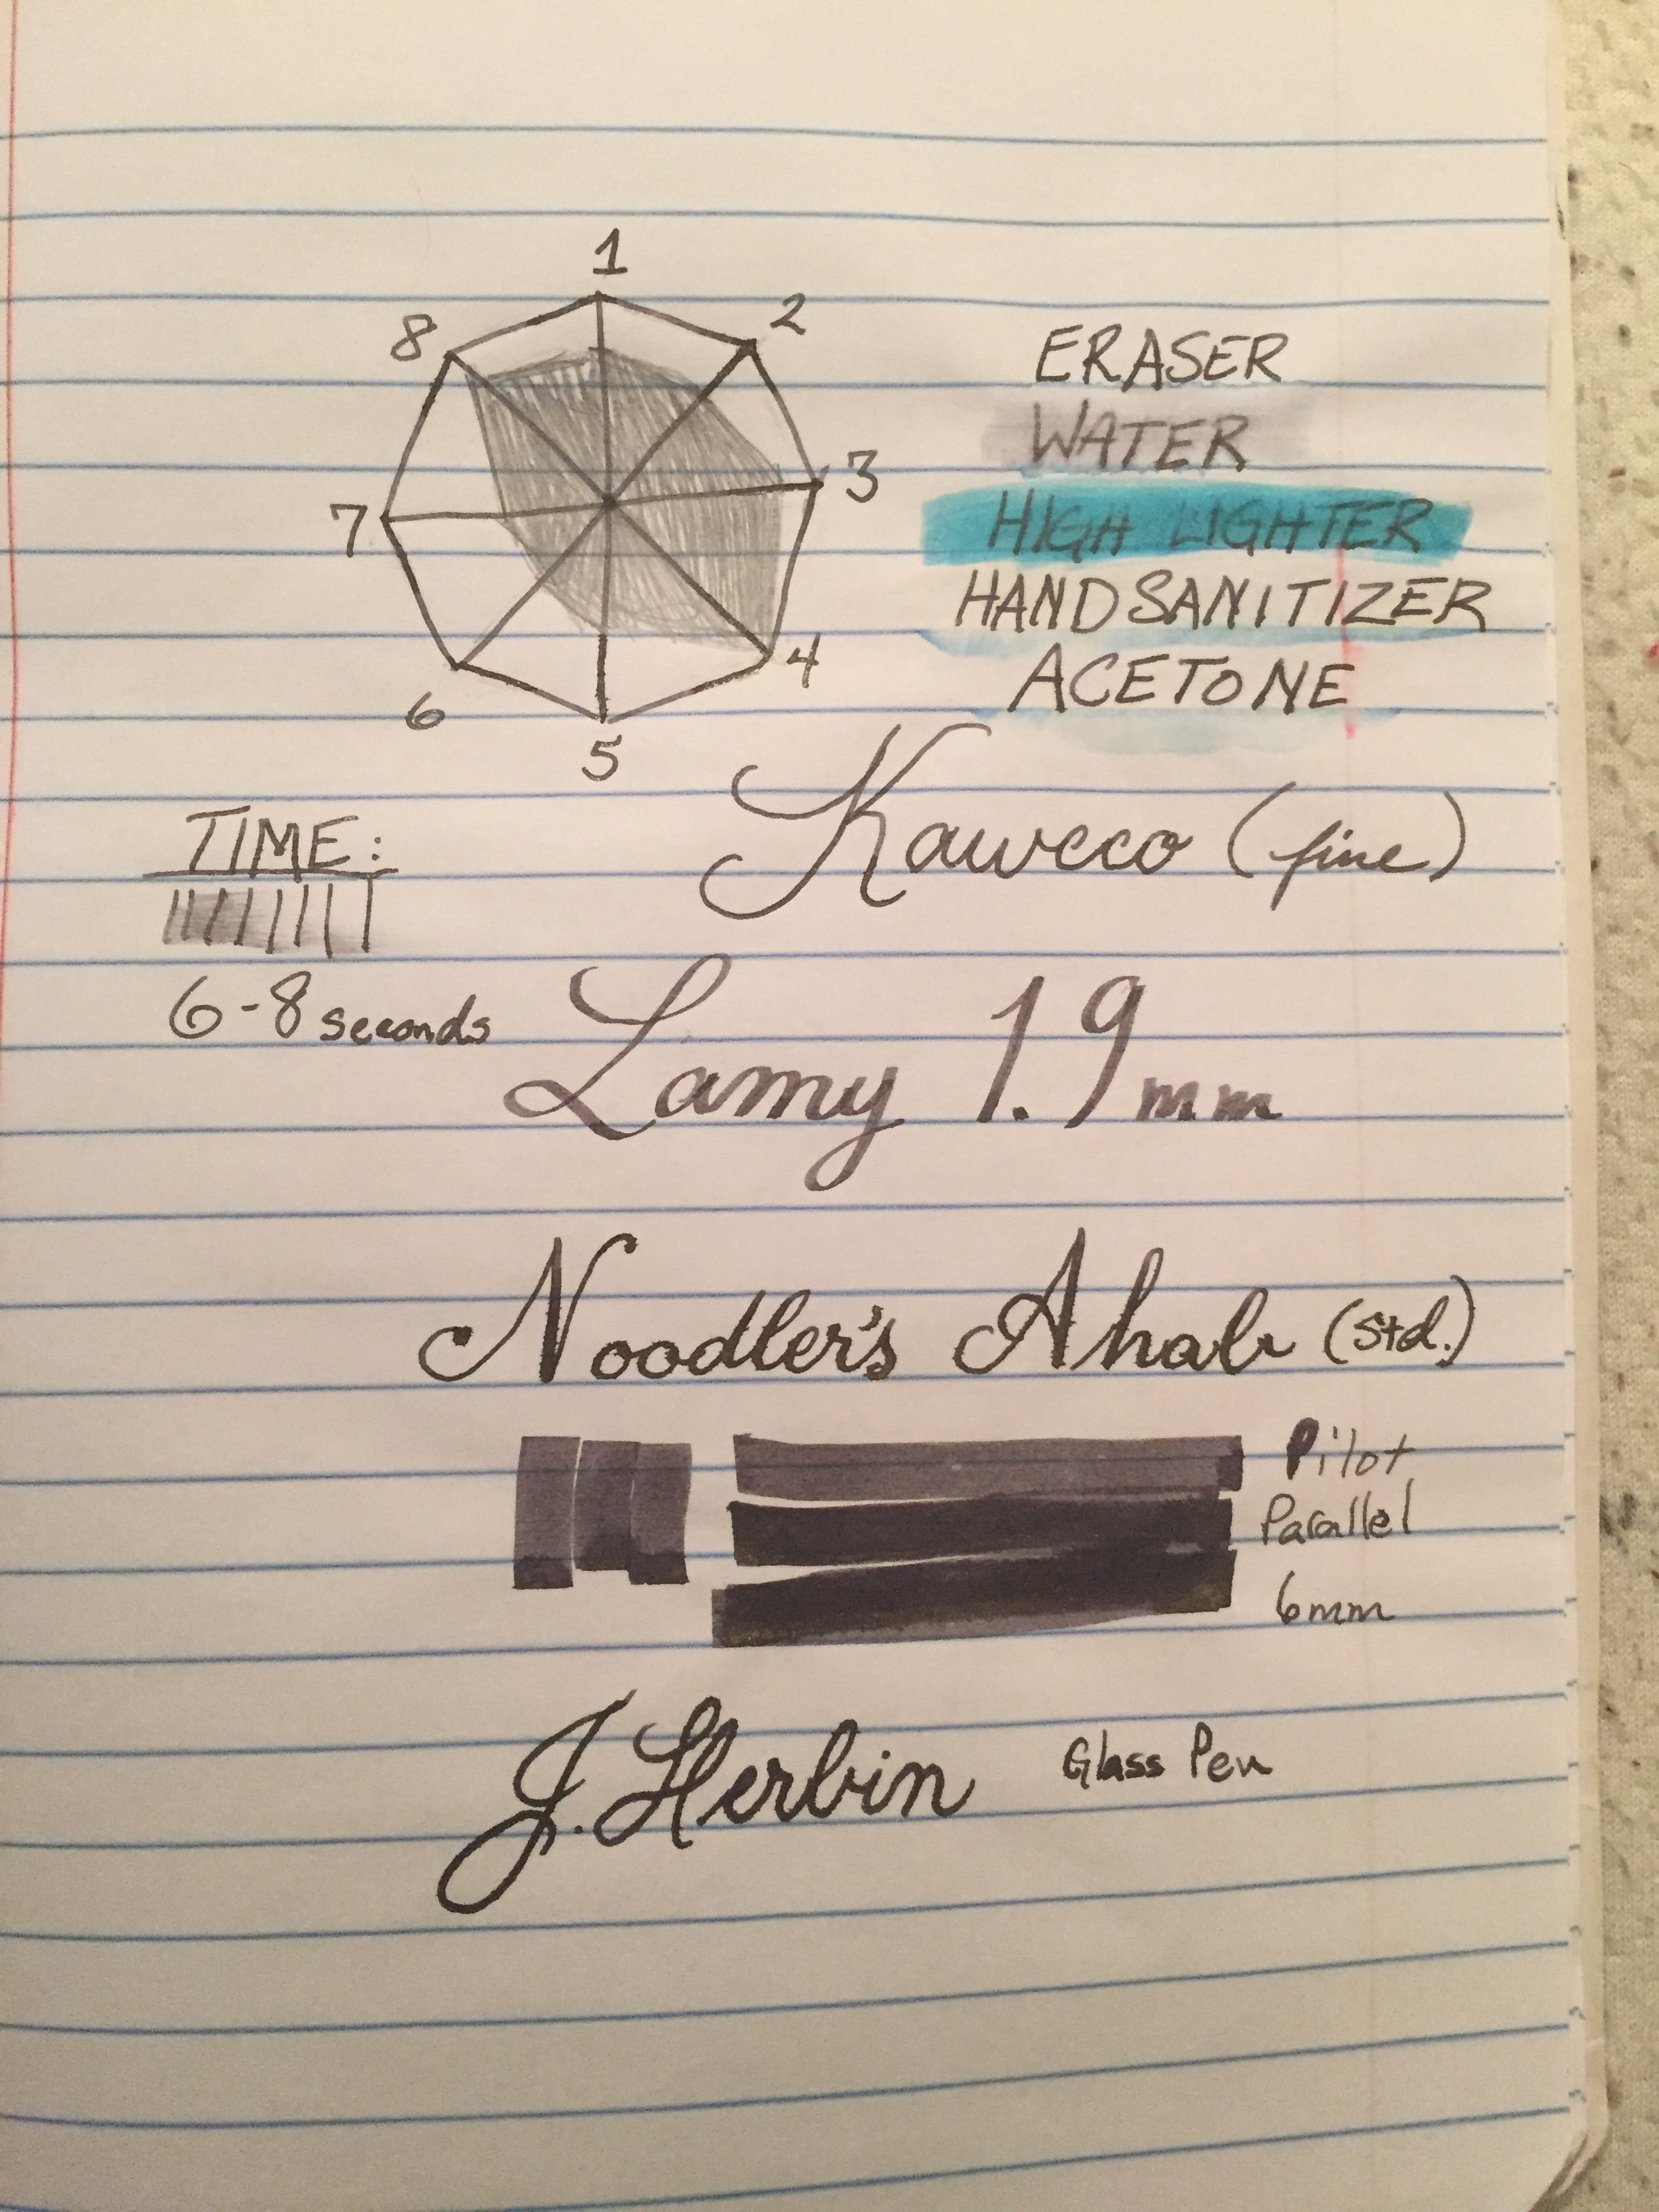 1
2
3
4
5
6
7
8
ERASER
WATER
HIGH LIGHTER
HANDSANITIZER
ACETONE
TIME:
6-8 seconds
Kaweco (fine)
Lamy 1.9mm
Noodler's Ahab (std.)
Pilot
Parallel
6mm
J. Herbin Glass Pen